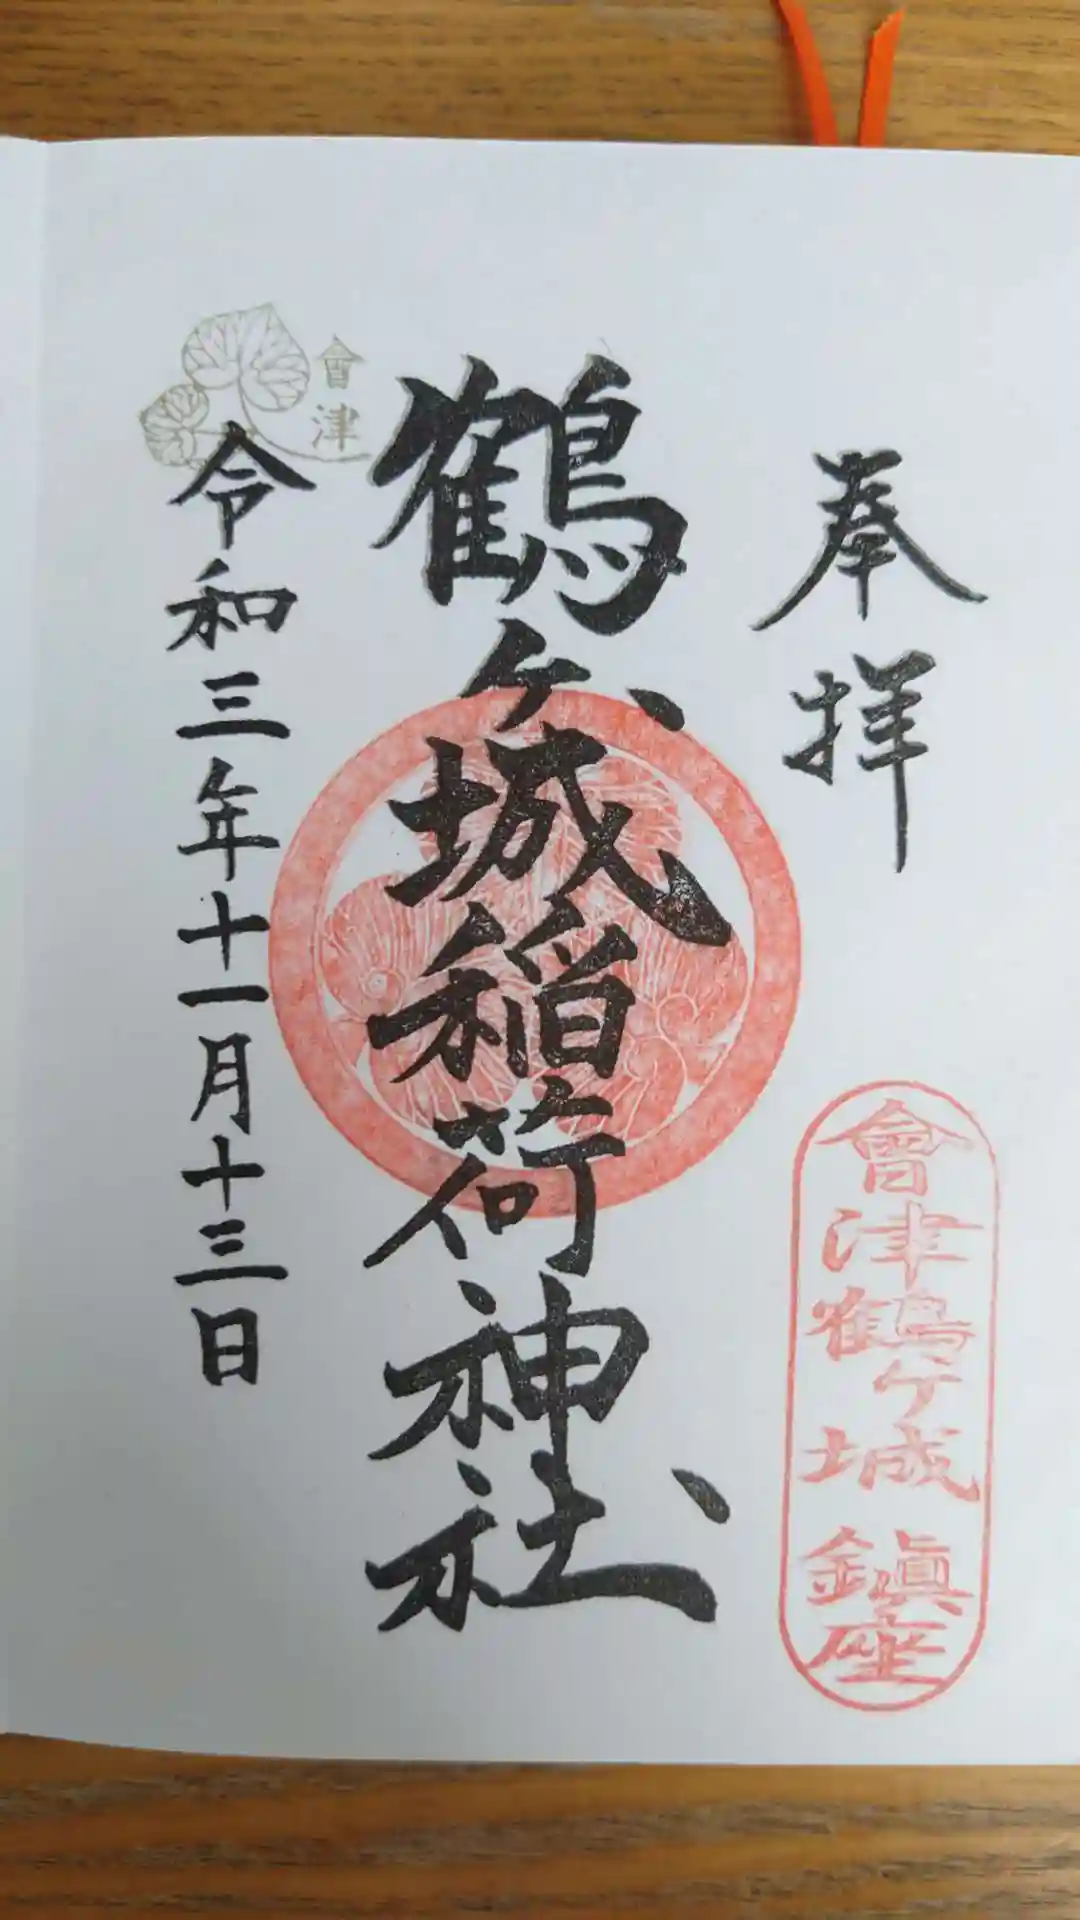 奉拝
會津鶴ケ城 鎭座
鶴ヶ城稲荷神社
會津
令和三年十一月十三日